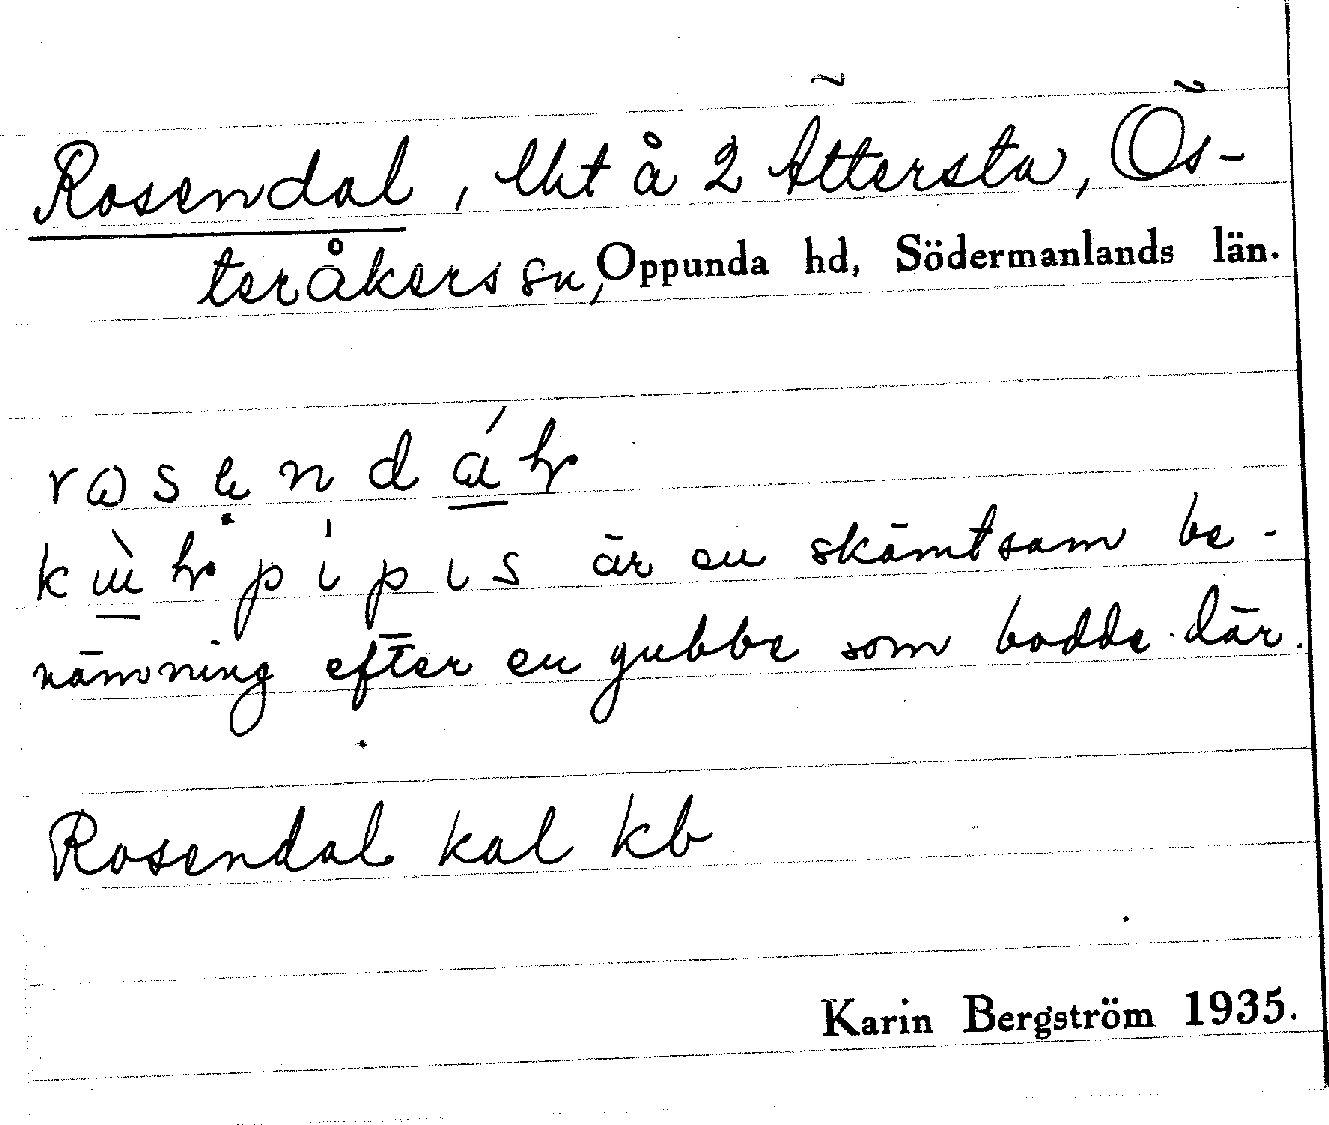 Rosendal, lht å 2 Ättersta, Ös-
teråkers sn, Oppunda hd, Södermanlands län.
är en skämtsam be-
nämning efter en gubbe som bodde där.
Rosendal kal kb
Karin Bergström 1935.